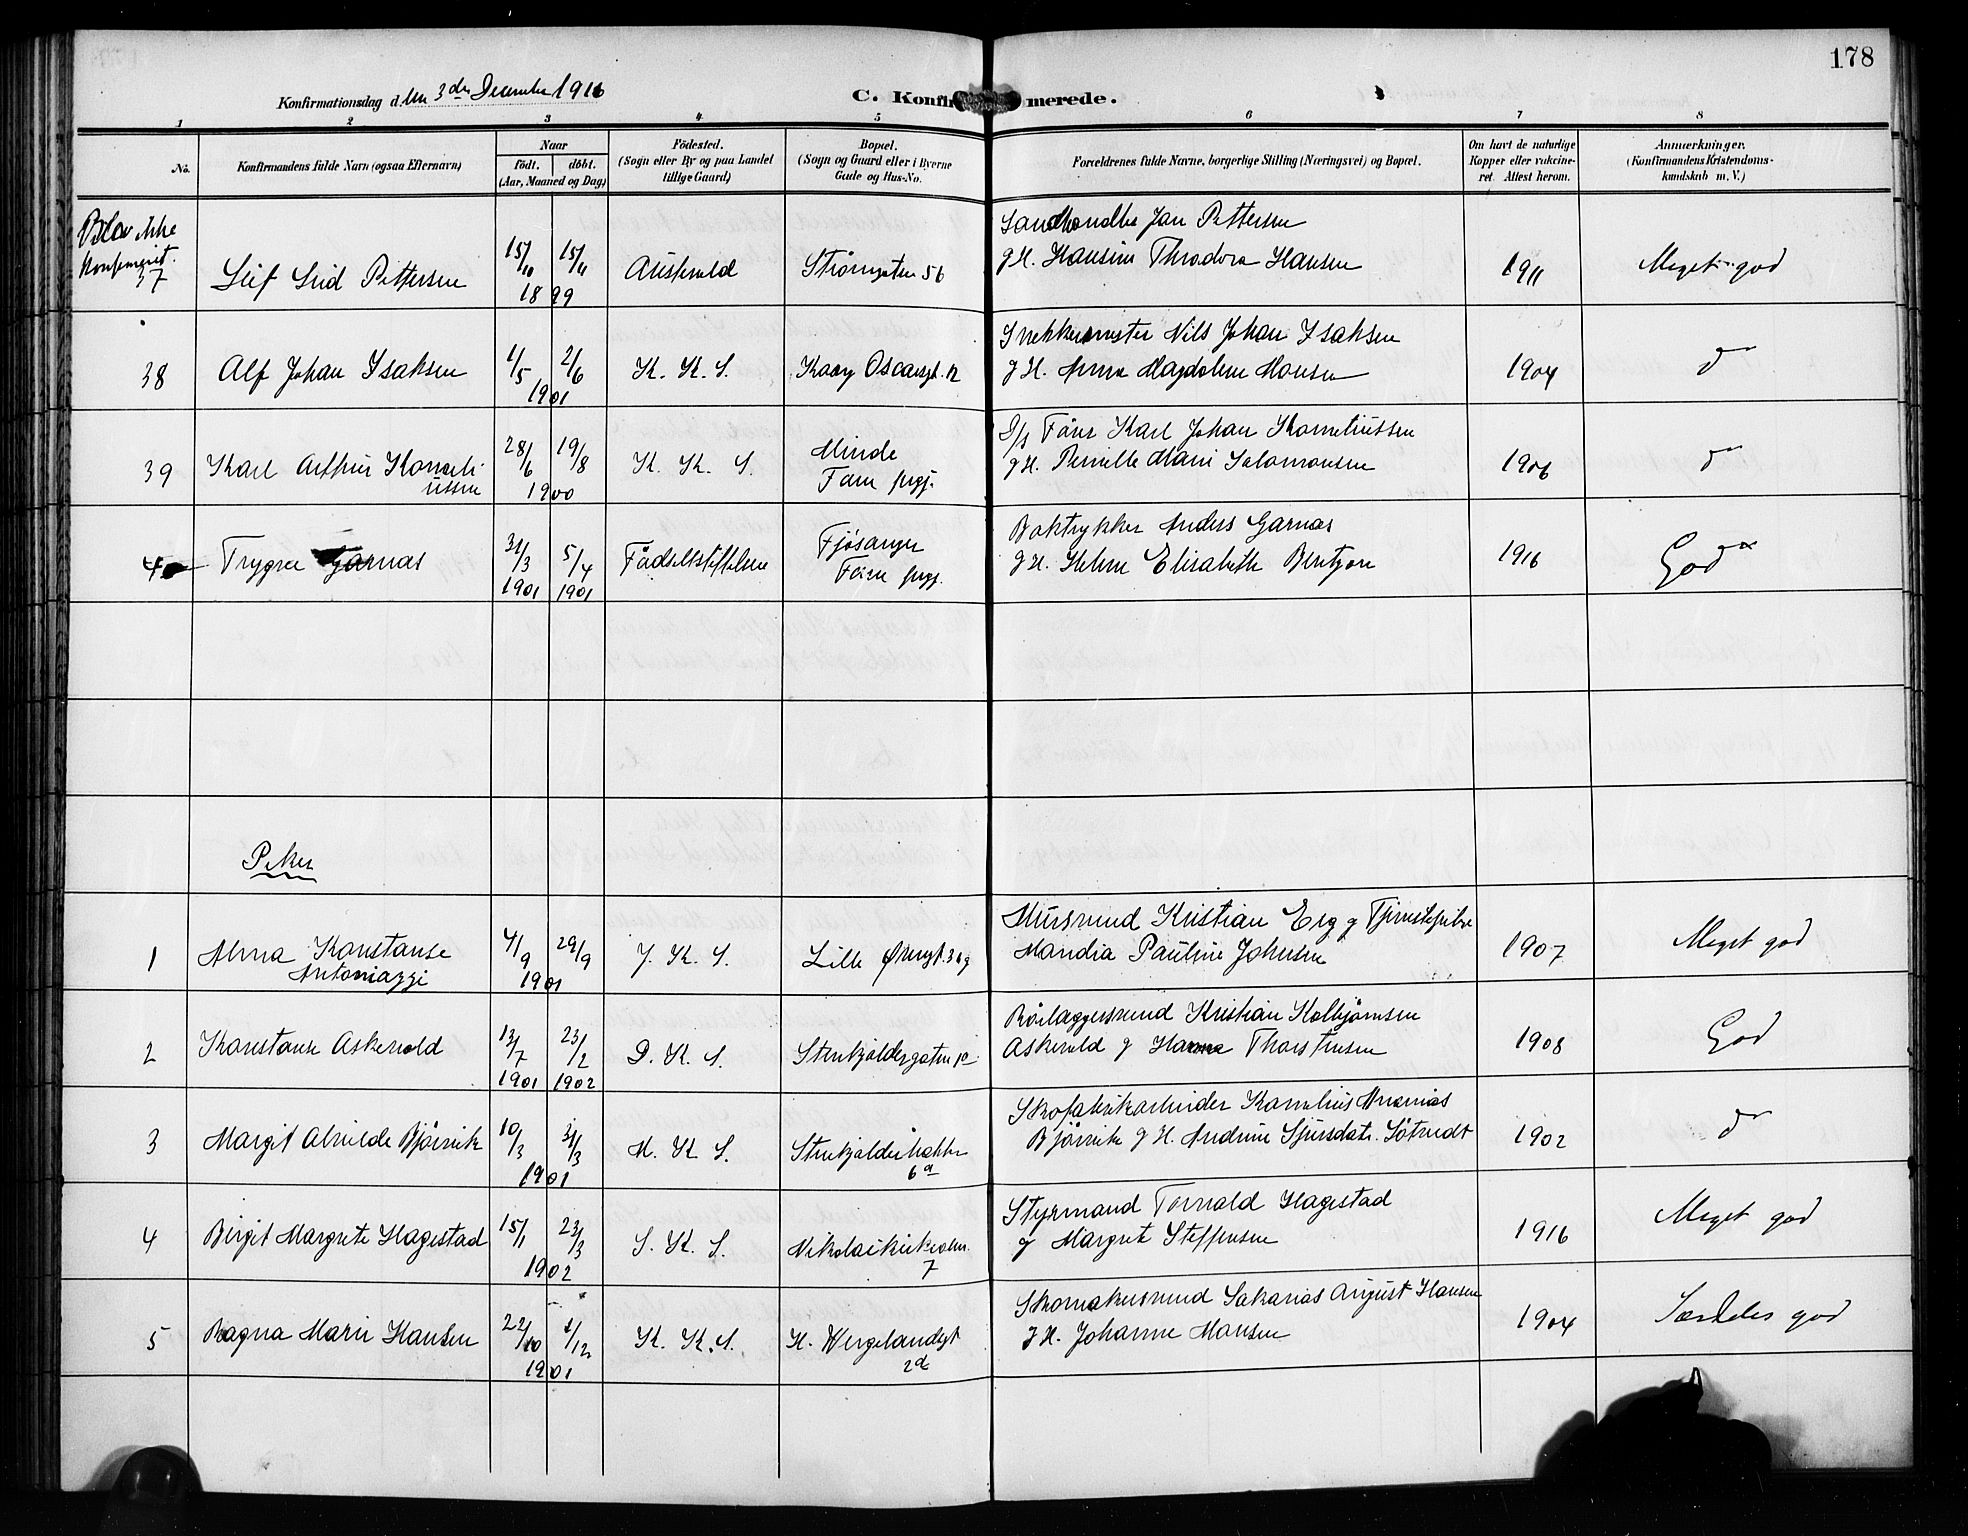 178
Konfirmationsdag den 3die December 1916
C. Konfirmerede.
1 2 3 4 5 6 7 8
No.
Konfirmandens fulde Navn (ogsaa Efternavn)
Naar
födt. döbt.
(Aar, Maaned og Dag)
Födested.
(Sogn eller By og paa Landet
tillige Gaard)
Bopæl.
(Sogn og Gaard eller i Byerne
Gade og Hus-No.
Forældrenes fulde Navne, borgerlige Stilling (Næringsvei) og Bopæl.
Om havt de naturlige
Kopper eller vakcine-
ret. Attest herom.
Anmærkninger.
(Konfirmandens Kristendoms-
kundskab m. V.)
Blev ikke
konfirmeret.
37 Leif Pettersen 15/11 15/11 1899 Askevold Strømgaten 56
Jan Pettersen
g H. Hansine Theodora Hansen
1911 Meget god
38 Alf Johan Isaksen 1/5 2/6 1901 K. K. S. Kong Oscarsgt. 12
Snekkermester Nils Johan Isaksen
g H. Anna Magdalene Hansen
1904 do
39 Karl Arthur Korneli-
ussen 28/6 19/8 1900 K. K. S. Minde
Fane prgj.
D/s Karl Johan Korneliussen
g H. Pernille Marie Salomonsen
1906 do
40 Trygve Garnas 31/3 1901 5/4 1901 Fødselsstiftelsen Fjøsanger
Fane prgj.
Boktrykker Anders Garnas
g H. Helene Elisabeth Bentzon
1916 God
Piker
1 Alma Konstanse
Antoniazzi 4/9 29/9 1901 J. K. S. Lille Øvregt. 30
Mursvend Kristian Erg g Tjenestepike
Mandia Pauline Johnsen
1907 Meget god
2 Konstanse Askevold 13/7 1901 23/2 1902 D. K. S. Stenkjeldergaten
Rørlæggersvend Kristian Kolbjørnsen
Askevold g Hanna Thorstensen
1908 God
3 Margit Alvilde Bjørsvik 10/3 31/3 1901 M. K. S. Stenkjelderbakken
6a
Skofabrikarbeider Kornelius Ananias
Bjørsvik g H. Andrine Sjursdatr. Søtvedt
1902 do
4 Birgit Margrete Hagestad 15/1 23/3 1902 S. K. S. Nikolaikirkealm.
7
Styrmand Torvald Hagestad
g Margrete Steffensen
1916 Meget god
5 Ragna Marie Hansen 22/10 1/12 1901 K. K. S. H. Wergelandsgt
2d
Skomakersvend Sakarias August Hansen
g H. Johanne Monsen
1904 Særdeles god